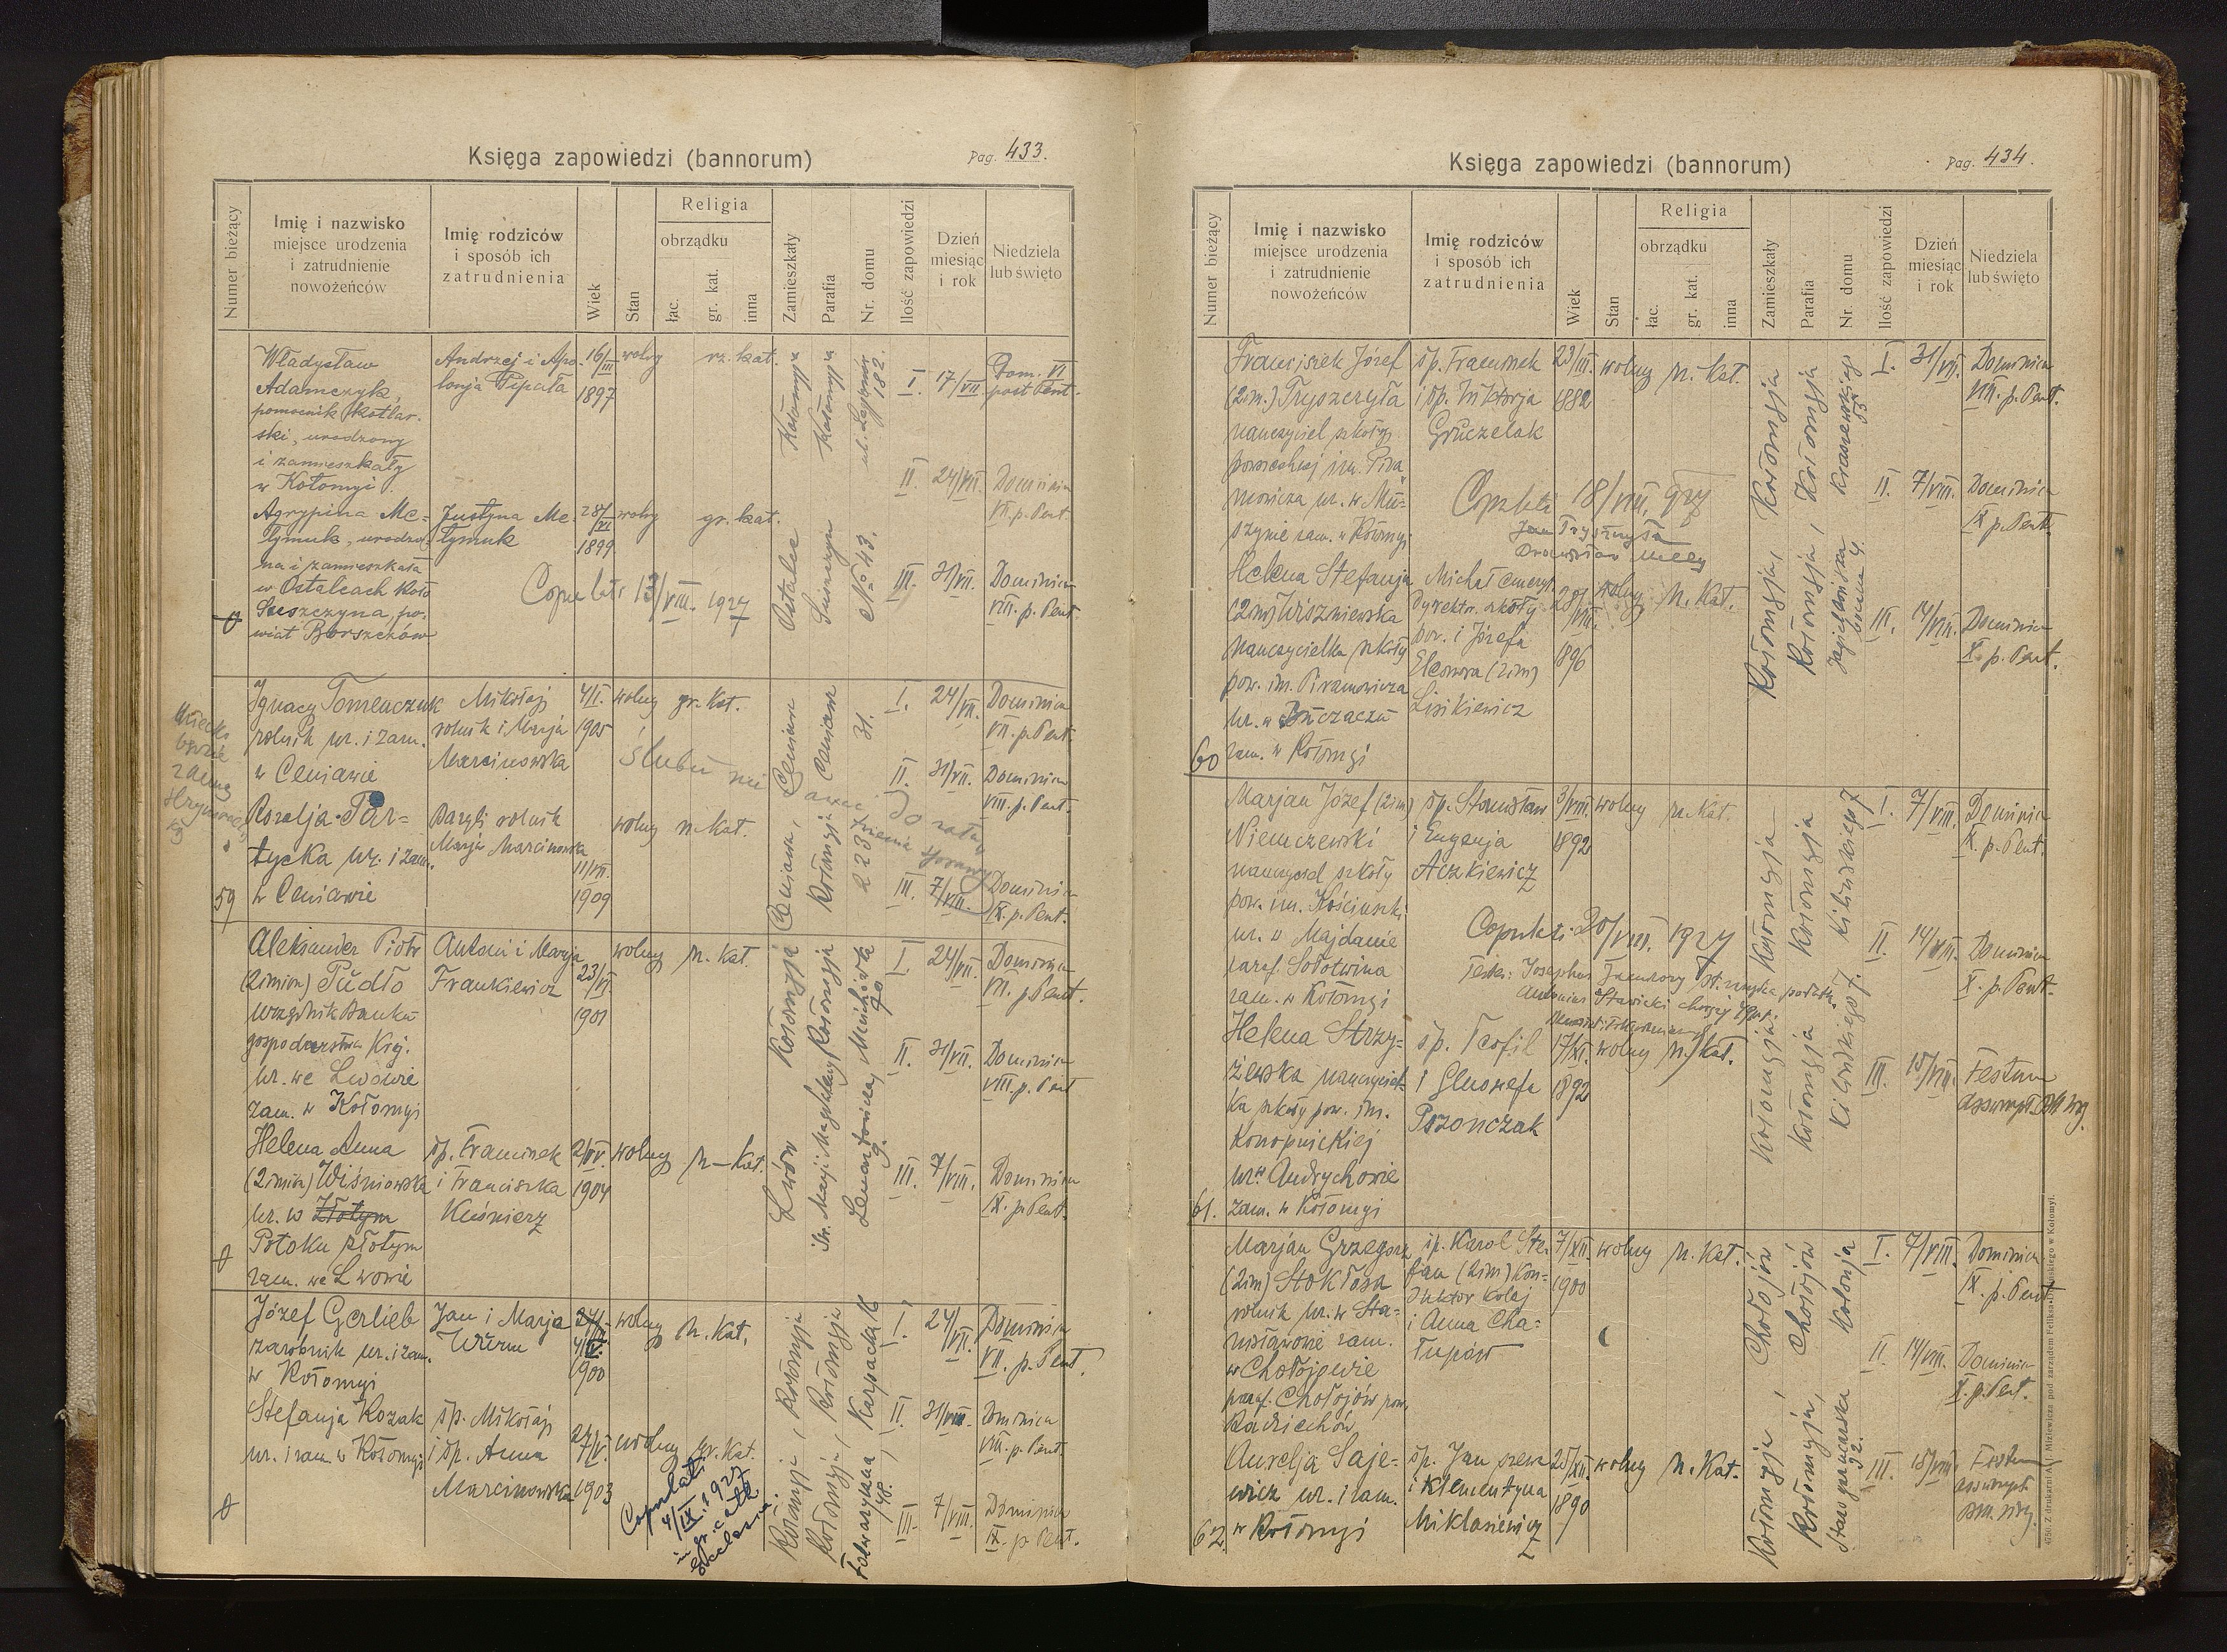 Księga zapowiedzi (bannorum)
Pag. 433.
Numer bieżący
Imię i nazwisko
miejsce urodzenia
i zatrudnienie
nowożeńców
Imię rodziców
i sposób ich
zatrudnienia
Wiek
Stan
Religia
obrządku
łac.
gr. kat.
inna
Zamieszkały
Parafia
Nr. domu
Ilość zapowiedzi
Dzień
miesiąc
i rok
Niedziela
lub święto
Władysław
Adamczyk,
pomocnik kotlar-
ski, urodzony
i zamieszkały
w Kołomyi.
Andrzej i Apo-
lonja Pipała
16/III
1897
wolny
rz. kat.
Kołomyja
Kołomyja
ul. Legjonów
182.
I. 17/VII Dom. VI
post Pent.
II. 24/VII. Dominica
VII. p. Pent.
III. 31/VII. Dominica
VIII. p. Pent.
Agrypina Me=
łymuk, urodzo-
na i zamieszkała
w Ostalcach koło
Suszczyna, po-
wiat Borszczów
Justyna Me-
łymuk
28/XI
1899
wolny
gr. kat.
Ostalce
Suszczyn
No 43.
Copulati 13/VIII. 1927
Ignacy Tomenczuk
rolnik ur. i zam.
w Ceniawie
Mikołaj
rolnik i Marja
Marcinowska
4/II.
1905
wolny
gr. Kat.
Ceniawa
Ceniawa
31.
I. 24/VII. Dominica
VII. p. Pent.
II. 31/VII. Dominica
VIII. p. Pent.
III. 7/VIII. Dominica
IX. p. Pent.
Rozalja Par=
tycka ur. i zam.
w Ceniawie
59
Bazyli rolnik
Marja Marcinowska
11/VII.
1909
wolny
rz. Kat.
Ceniawa,
Kołomyja
223
Aleksander Piotr
(2 imion) Pudło
urzędnik Banku
gospodarstwa Kraj.
ur. we Lwowie
zam. w Kołomyi
Antoni i Marja
Frankiewicz
23/VI.
1901
wolny
rz. Kat.
Kołomyja
Kołomyja
70
I. 24/VII. Dominica
VII. p. Pent.
II. 31/VII. Dominica
VIII. p. Pent
III. 7/VIII. Dominica
IX. p. Pent.
Helena Anna
(2 imion) Wiśniowska
ur. w Złotym
Potoku złotym
zam. we Lwowie
śp. Franciszek
i Franciszka
Kuśnierz
2/IV.
1904
wolny
rz-Kat.
Lwów
św. Marji Magdaleny
9.
Józef Gerlieb
zarobnik ur. i zam.
w Kołomyi
Jan i Marja
Wurm
1900
wolny
rz. Kat.
Kołomyja
Kołomyja
Karpacka 16
I. 24/VII. Dominica
VII. p. Pent.
II. 31/VII. Dominica
VIII. p. Pent.
III. 7/VIII. Dominica
IX. p. Pent.
Stefanja Kozak
ur. i zam. w Kołomyi
śp. Mikołaj
i śp. Anna
Marcinowska
1903
wolny
gr. Kat.
Kołomyja
Kołomyja
48.
Copulati
4/IX. 1927
in gr. cath
ecclesia.
Księga zapowiedzi (bannorum)
Pag. 434.
Numer bieżący
Imię i nazwisko
miejsce urodzenia
i zatrudnienie
nowożeńców
Imię rodziców
i sposób ich
zatrudnienia
Wiek
Stan
Religia
obrządku
łac.
gr. kat.
inna
Zamieszkały
Parafia
Nr. domu
Ilość zapowiedzi
Dzień
miesiąc
i rok
Niedziela
lub święto
Franciszek Józef
(2 im.) Tryszczyła
nauczyciel szkoły
powszechnej im. Pira-
mowicza ur. w Mu-
szynie zam. w Kołomyi
śp. Franciszek
i śp. Wiktorja
Gruczelak
23/III.
1882
wolny
rz. Kat.
Kołomyja
Kołomyja
Kraszewskiego
53
I. 31/VII. Dominica
VIII. p. Pent.
II. 7/VIII. Dominica
IX p. Pent.
III. 14/VIII. Dominica
X. p. Pent.
Copulati 18/VIII. 927
Helena Stefanja
(2 im) Wiszniewska
nauczycielka szkoły
pow. im. Piramowicza
ur. w Buczaczu
60 zam. w Kołomyi
Michał emeryt.
dyrektor szkoły
pow. i Józefa
Eleonora (2 im)
Lisikiewicz
28/VIII.
1896
wolny
rz. Kat.
Kołomyja,
Kołomyja,
Jagiellońska
boczna 4.
Marjan Józef (2 im)
Niemczewski
nauczyciel szkoły
pow. im. Kościuszki
ur. w Majdanie
paraf. Sołotwina
zam. w Kołomyi
śp. Stanisław
i Eugenja
Aczkiewicz
3/VIII
1892
wolny
rz. Kat.
Kołomyja
Kołomyja
Kilińskiego 7
I. 7/VIII. Dominica
IX. p. Pent.
II. 14/VIII. Dominica
X. p. Pent.
III. 15/VIII. Festum
Assumpt. BM Virg.
Copulati 20/VIII. 1927
Helena Strzy=
żewska nauczyciel-
ka szkoły pow. im.
Konopnickiej
ur. w Andrychowie
61. zam. w Kołomyi
śp. Teofil
Pszonczak
17/XI.
1892
wolny
rz. Kat.
Kołomyja
Kołomyja
Kilińskiego 7.
Marjan Grzegorz
(2 im) Stokłosa
rolnik ur. w Sta-
nisławowie zam.
w Chołojowie
paraf. Chołojów pow.
Radziechów
śp. Karol Ste-
fan (2 im) kon-
duktor kolej
i Anna Cha-
łupka
7/XII.
1900
wolny
rz. Kat.
Chołojów
Chołojów
Kolonja
I. 7/VIII. Dominica
IX. p. Pent
II. 14/VIII. Dominica
X. p. Pent.
III. 15/VIII. Festum
Assumpt.
BM. Virg.
Aurelja Saje-
wicz ur. i zam.
62 w Kołomyi
śp. Jan szewc
i Klementyna
Miklasiewicz
25/XII.
1890
wolny
rz. Kat.
Kołomyja,
Kołomyja,
92.